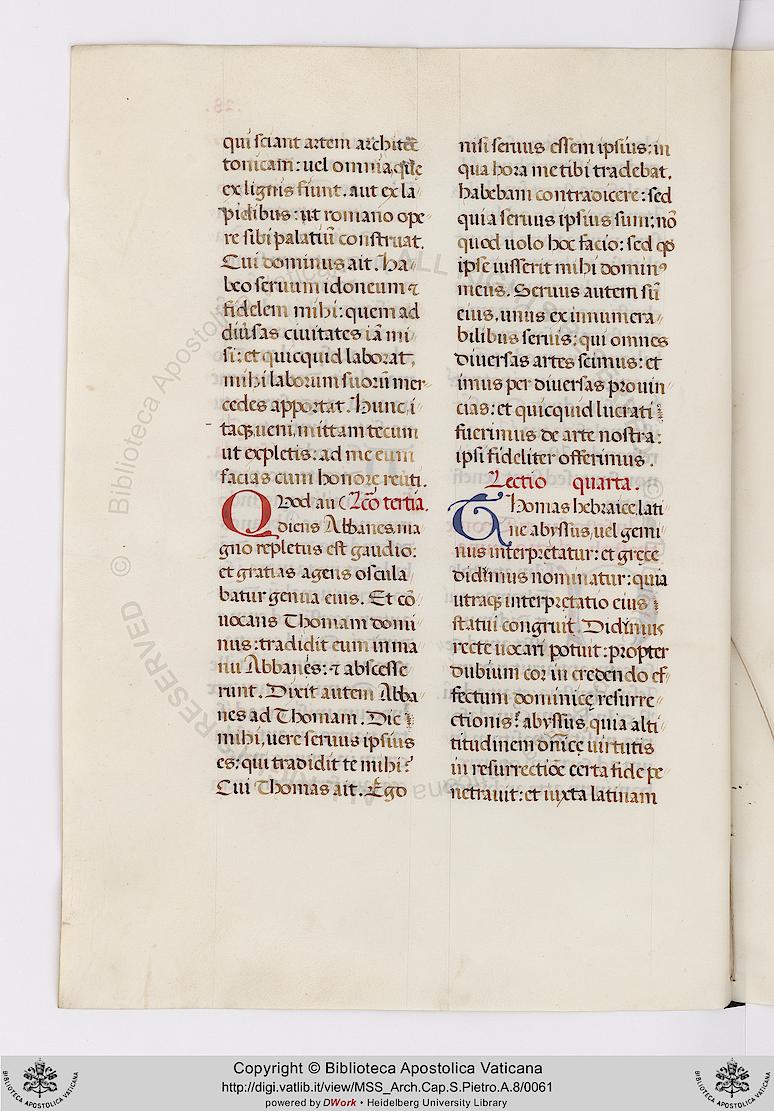 qui sciant artem architec
tonicam: uel omnia, quę
ex lignis fiunt. aut ex la
pidibus: ut romano ope
re sibi palatiū construat.
Cui dominus ait. Ha
beo seruum idoneum ⁊
fidelem mihi: quem ad
diūsas ciuitates iā mi
si: et quicquid laborat,
mihi laborum suorū mer
cedes apportat. Hunc, i
taq; ueni, mittam tecum
ut expletis: ad me eum
facias cum honore reūti.
Lcō tertia.
Qvod au
diens Abbanes, ma
gno repletus est gaudio:
et gratias agens oscula
batur genua eius. Et cō
uocans Thomam domi
nus: tradidit eum in ma
nu Abbanes: ⁊ abscesse
runt. Dixit autem Abba
nes ad Thomam. Dic
mihi, uere seruus ipsius
es: qui tradidit te mihi?
Cui Thomas ait. Ego
nisi seruus essem ipsius: in
qua hora me tibi tradebat,
habebam contradicere: sed
quia seruus ipsius sum: nō
quod uolo hoc facio: sed qđ
ipse iusserit mihi dominꝰ
meus. Seruus autem sū
eius, unus ex innumera
bilibus seruis: qui omnes
diuersas artes scimus: et
imus per diuersas prouin
cias: et quicquid lucrati
fuerimus de arte nostra:
ipsi fideliter offerimus.
Lectio quarta.
Thomas hebraice, lati
ne abyssus, uel gemi
nus interpretatur: et gręce
didimus nominatur: quia
utraq; interpretatio eius
statui congruit. Didimus
recte uocari potuit: propter
dubium cor in credendo ef
fectum dominicę resurre
ctionis: abyssus, quia alti
titudinem dn̄icę uirtutis
in resurrectiōe certa fide pe
netrauit: et iuxta latinam
Copyright © Biblioteca Apostolica Vaticana
http://digi.vatlib.it/view/MSS_Arch.Cap.S.Pietro.A.8/0061
powered by DWork • Heidelberg University Library